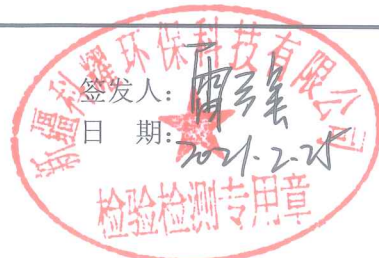 新疆科耀环保科技有限公司
签发人:
日 期: 2021.2.25
检验检测专用章